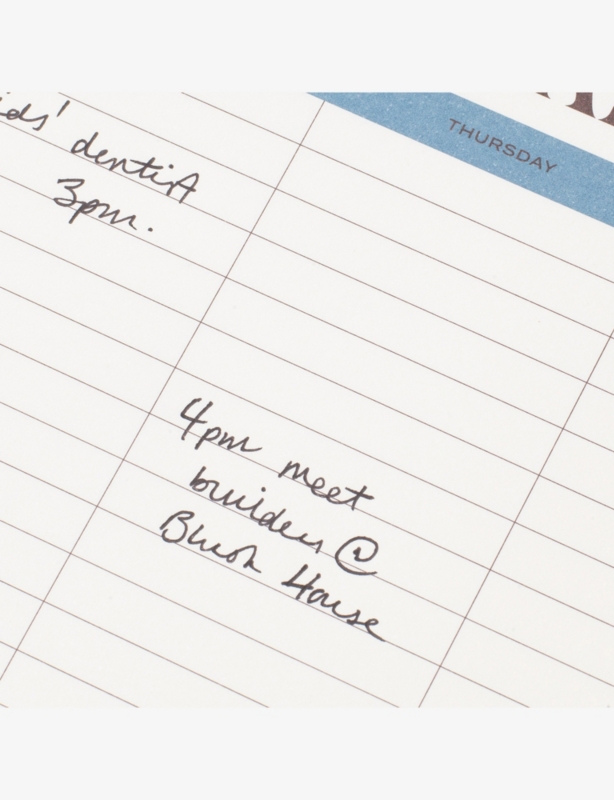 THURSDAY
kids' dentist
3pm.
4pm meet
builders @
Blush House